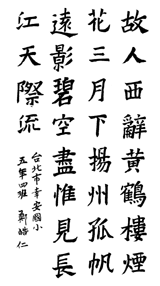 故人西辭黃鶴樓煙
花三月下揚州孤帆
遠影碧空盡惟見長
江天際流
台北市幸安國小
五年四班 鄭皓仁